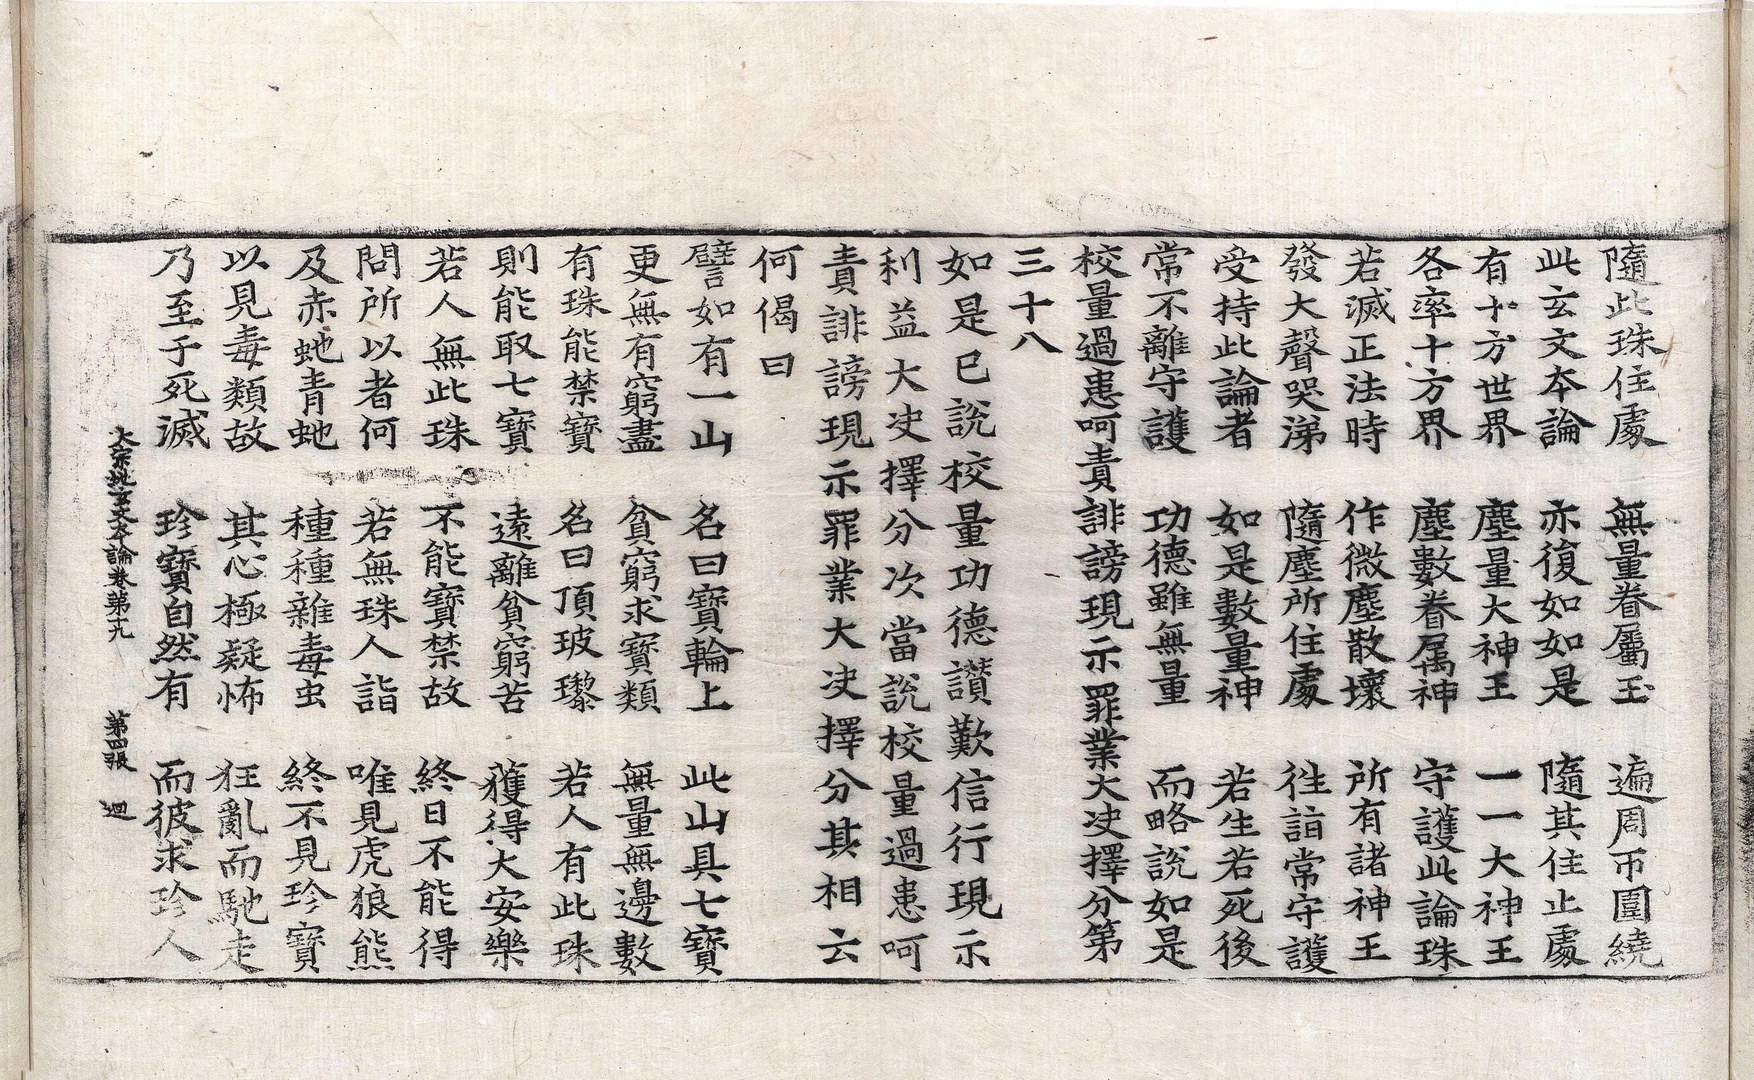 隨此珠住處　無量眷屬玉　遍周帀圍繞
此玄文本論　亦復如如是　隨其住止處
有十方世界　塵量大神王　一一大神王
各率十方界　塵數眷属神　守護此論珠
若滅正法時　作微塵散壞　所有諸神王
發大聲哭涕　隨塵所住處　徃詣常守護
受持此論者　如是數量神　若生若死後
常不離守護　功德雖無量　而略說如是
校量過患呵責誹謗現示罪業大决擇分第
三十八
如是已說校量功德讃歎信行現示
利益大决擇分次當說校量過患呵
責誹謗現示罪業大决擇分其相云
何偈曰
譬如有一山　名曰寶輪上　此山具七寶
更無有窮盡　貧窮求寶類　無量無邊數
有珠能禁寶　名曰頂玻瓈　若人有此珠
則能取七寶　遠離貧窮苦　獲得大安樂
若人無此珠　不能寶禁故　終日不能得
問所以者何　若無珠人詣　唯見虎狼熊
及赤虵青虵　種種雜毒虫　終不見珍寶
以見毒類故　其心極疑怖　狂亂而馳走
乃至于死滅　珍寶自然有　而彼求珍人
大宗地玄文本論卷第十九　第四張　迴